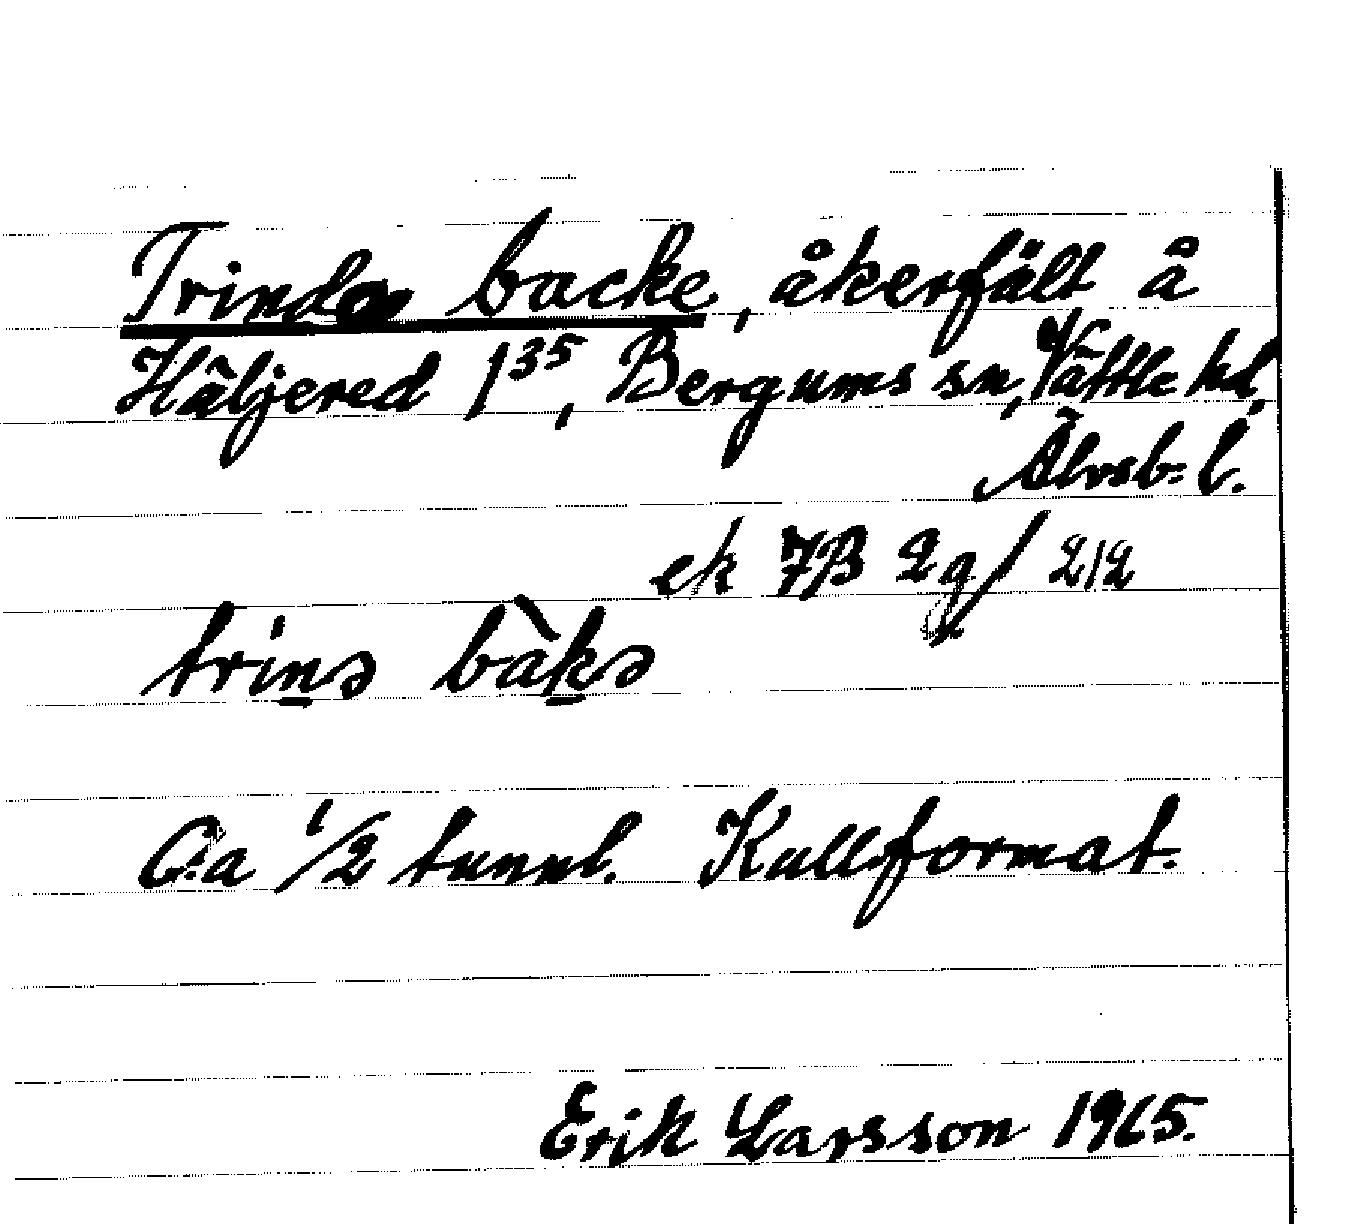 Trinda backe, åkerfält å
Häljered 1³⁵, Bergums sn, Vättle hd,
Älvsb. l.
ek 7B 2g/ 212
trin̲ə bàk̲ə
C:a 1/2 tunnl. Kullformat.
Erik Larsson 1965.